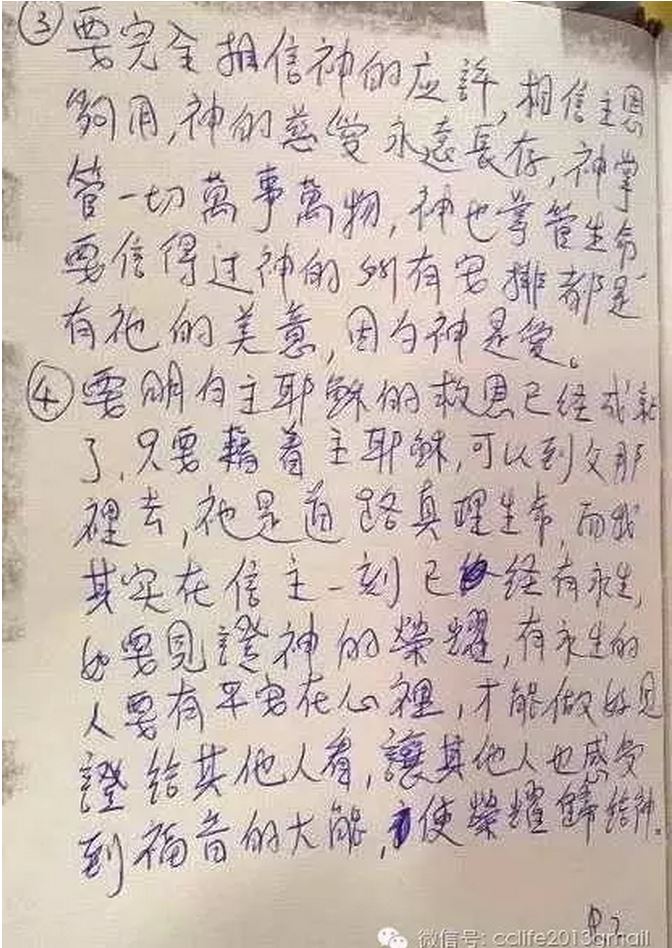 ③要完全相信神的应許,相信主恩
夠用,神的慈愛永遠長存,神掌
管一切萬事萬物,神也掌管生命
要信得过神的所有安排都是
有祂的美意,因为神是愛。
④要明白主耶穌的救恩已经成就
了,只要藉着主耶穌,可以到父那
裡去,祂是道路真理生命,而我
其实在信主一刻已经有永生,
也要見證神的榮耀,有永生的
人要有平安在心裡,才能做好見
證给其他人看,讓其他人也感受
到福音的大能,使榮耀歸给神。
P2
微信号: cclife2013gmail